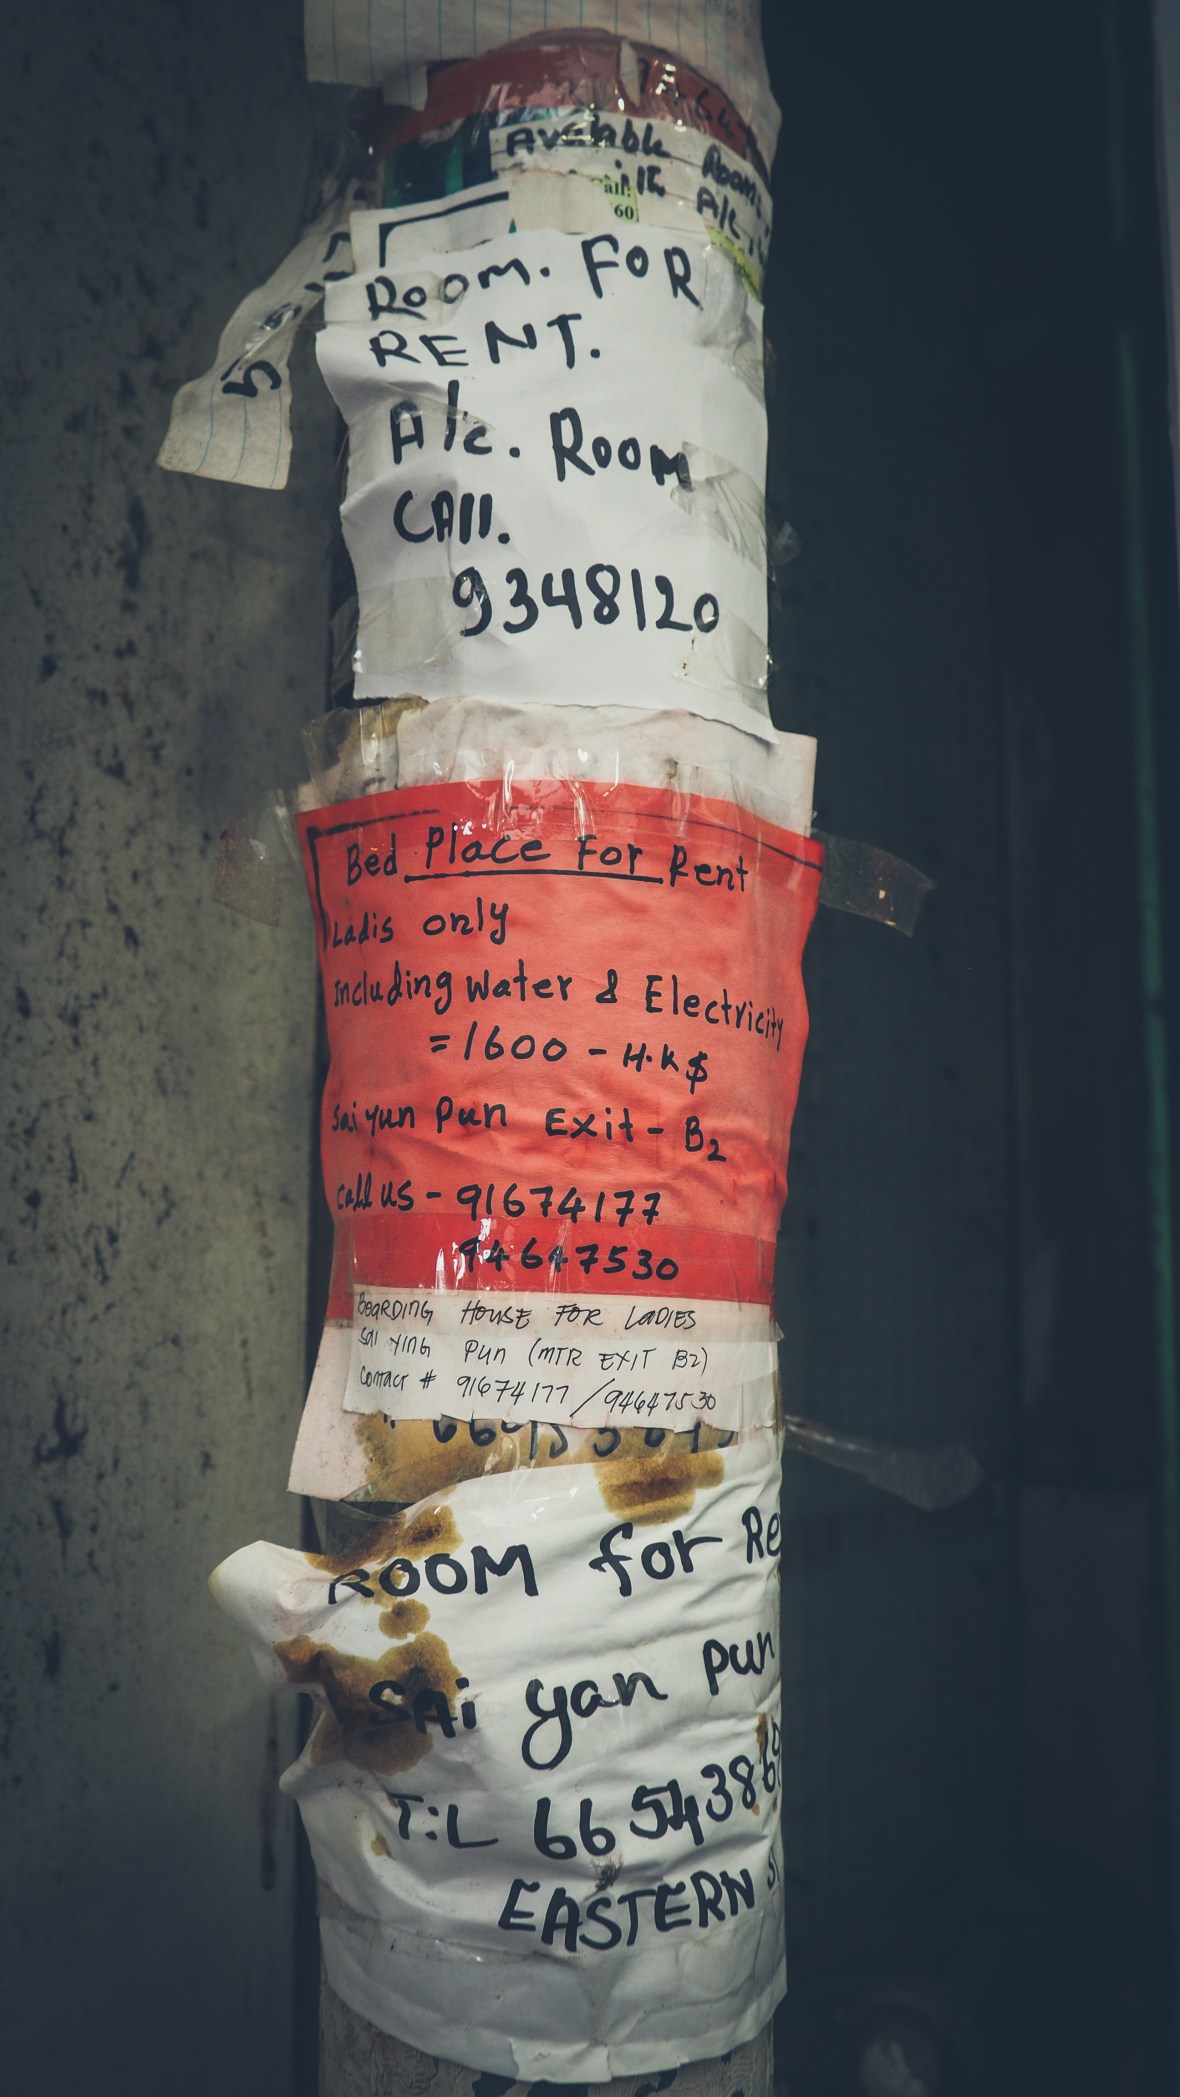 Available Room
A/c
ROOM. FOR
RENT.
A/c. ROOM
CAll.
9348120
Bed Place For Rent
Ladis only
including water & Electricity
=1600 - H.K$
Sai yun Pun Exit - B2
call us - 91674177
94647530
BOARDING HOUSE FOR LADIES
SAI YING PUN (MTR EXIT B2)
CONTACT # 91674177 / 94647530
ROOM for Re
SAi yan pun
T:L
EASTERN